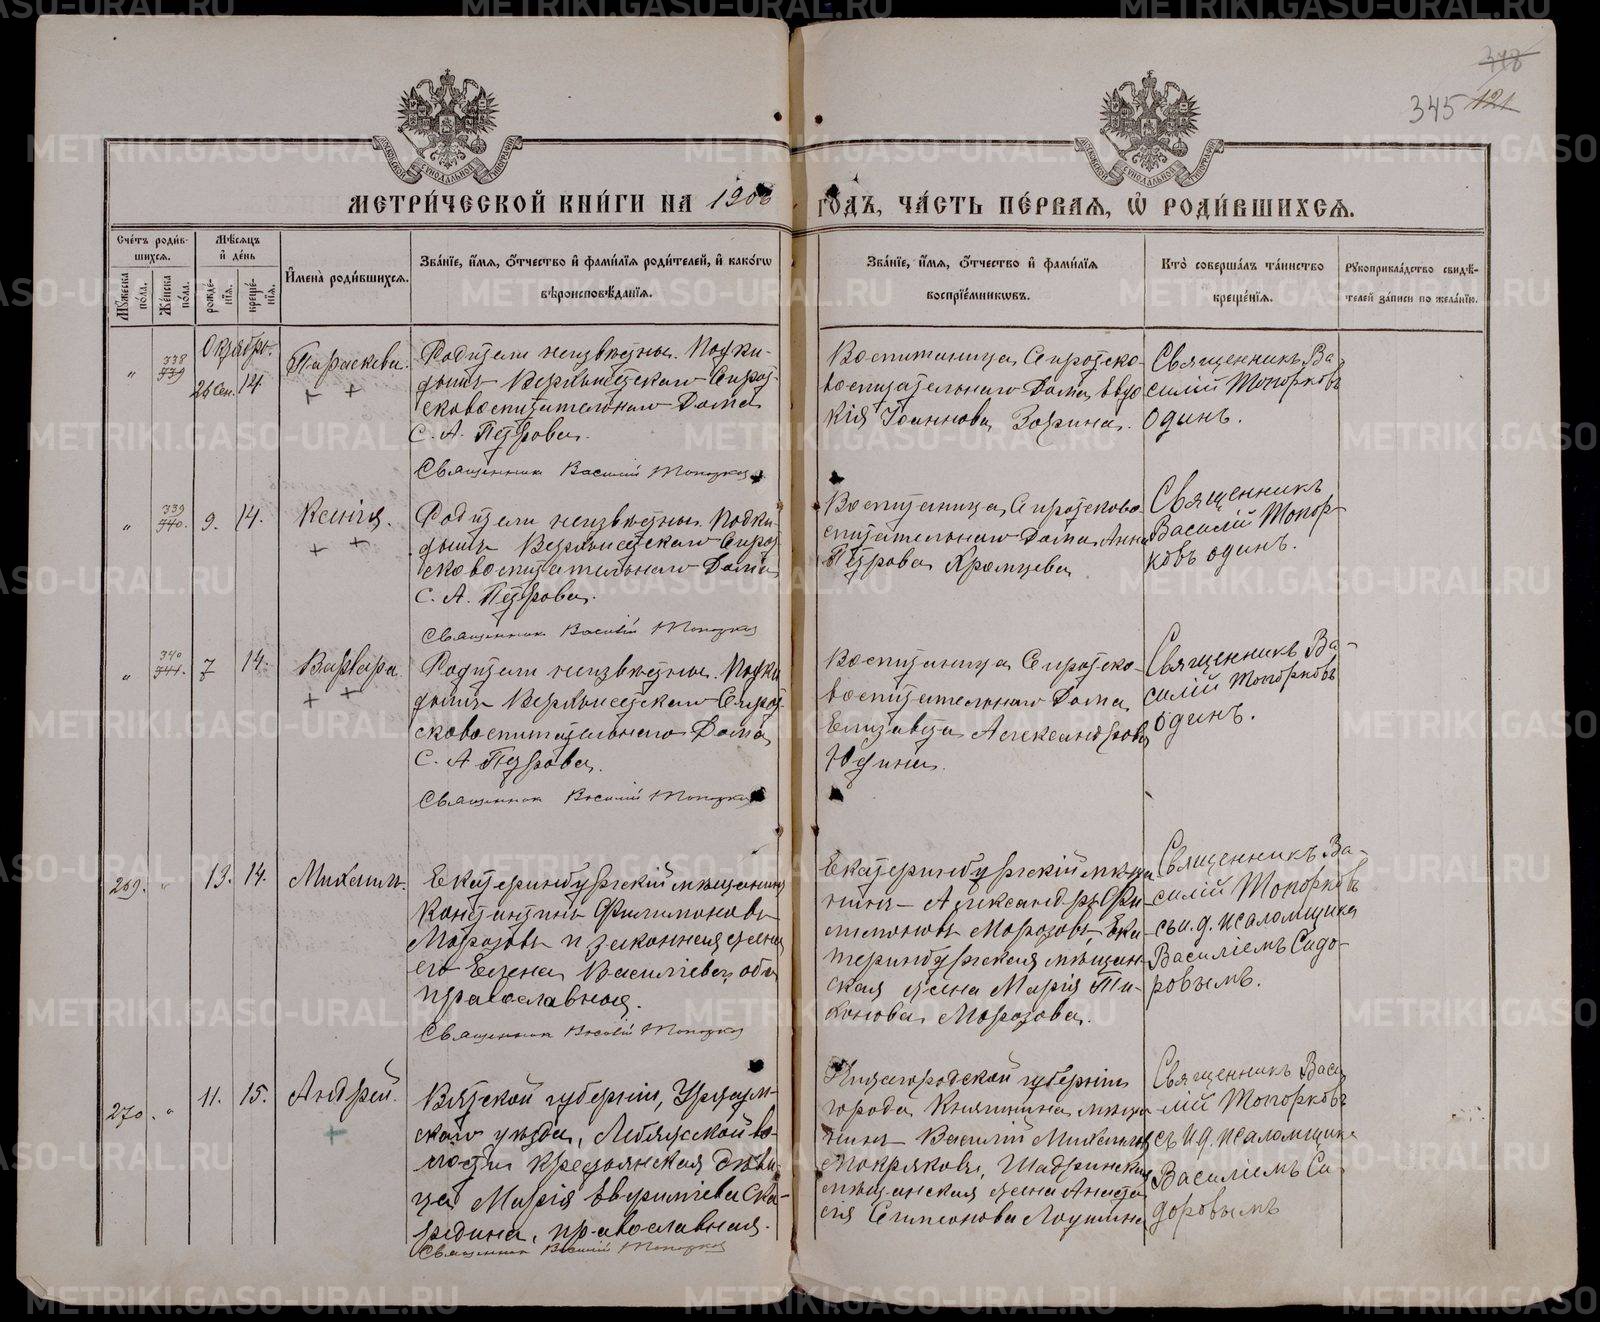 378
345 121
МЕТРИ́ЧЕСКОЙ КНИ́ГИ НА 1906
ГОДЪ, ЧА́СТЬ ПЕ́РВАЯ, Ѡ РОДИ́ВШИХСЯ.
Сче́тъ роди́в-
шихся.
Мѣ́сяцъ
и҆ де́нь
Му́жеска
по́ла.
Же́нска
по́ла.
рожде́-
нїя.
креще́-
нїя.
И҆мена̀ роди́вшихся.
Зва́нїе, и҆́мя, ѻ҆́тчество и҆ фами́лїя роди́телей, и҆ како́гѡ
вѣроисповѣ́данїя.
Зва́нїе, и҆́мя, ѻ҆́тчество и҆ фами́лїя
воспрїе́мникѡвъ.
Кто̀ соверша́лъ та́инство
креще́нїя.
Рꙋкоприкла́дство свидѣ́-
телей за́писи по жела́нїю.
Октябрь.
„ 338 739 26 Сен. 14 Параскева.
Родители неизвѣстны. Подки-
дышъ Верхисетскаго Сирот-
сковоспитательнаго Дома
С. А. Петрова.
Священник Василий Топорков
Воспитаница Сиротско-
воспитательнаго Дома Евдо
кія Іоаннова Зорина.
Священникъ Ва-
силій Топорковъ
одинъ.
„ 339 740. 9. 14. Ксенія.
Родители неизвѣстны. Подки-
дышъ Верхисетскаго Сирот
сковоспитательнаго Дома
С. А. Петрова.
Священник Василий Топорков
Воспитаница Сиротсково
спитательнаго Дома Анна
Петрова Храмцева
Священникъ
Василій Топор-
ковъ одинъ.
„ 340 741. 7 14. Варвара
Родители неизвѣстны. Подки
дышъ Верхисетскаго Сирот-
сковоспитательнаго Дома
С. А Петрова.
Священник Василий Топорков
Воспитаница Сиротско-
воспитательнаго Дома
Елизавета Александрова
Юдина.
Священникъ Ва-
силій Топорковъ
одинъ.
269. „ 13. 14. Михаилъ.
Екатеринбургскій мѣщанинъ
Константинъ Филимоновъ
Морозовъ и законная жена
его Елена Васильева, оба
православные.
Священник Василий Топорков
Екатеринбургскій мѣща
нинъ Александръ Фи-
лимоновъ Морозовъ, Ека
теринбургская мѣщан-
ская жена Марія Ти-
хонова Морозова.
Священникъ Ва-
силій Топорковъ
съ и. д. псаломщика
Василіемъ Сидо-
ровымъ.
270. „ 11. 15. Андрей.
Вятской губерніи, Уржум-
скаго уѣзда, Лебяжской во-
лости крестьянская дѣви-
ца Марія Евфиміева Ска-
редина, православная.
Священник Василий Топорков
Нижегородской губерніи
города Княгинина мѣща
нинъ Василій Михаиловъ
Мокряковъ, Шадринская
мѣщанская жена Анаста
сія Симеонова Лоушкина
Священникъ Васи
лій Топорковъ
съ и. д. псаломщика
Василіемъ Си
доровымъ